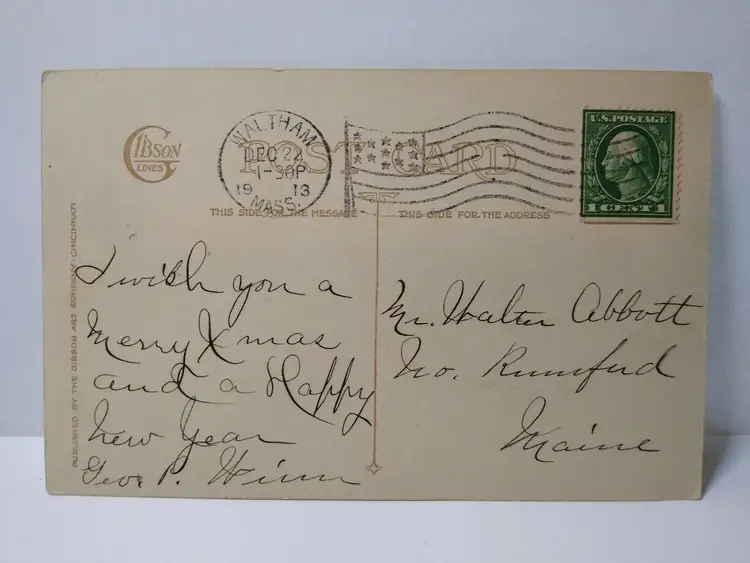 GIBSON
LINES
WALTHAM
DEC 22
1-30P
19 13
MASS.
POST CARD
U.S. POSTAGE
1 CENT 1
THIS SIDE FOR THE MESSAGE
THIS SIDE FOR THE ADDRESS
PUBLISHED BY THE GIBSON ART COMPANY, CINCINNATI
I wish you a
Merry Xmas
and a Happy
New Year
Geo. P. Winn
Mr. Walter Abbott
No. Rumford
Maine